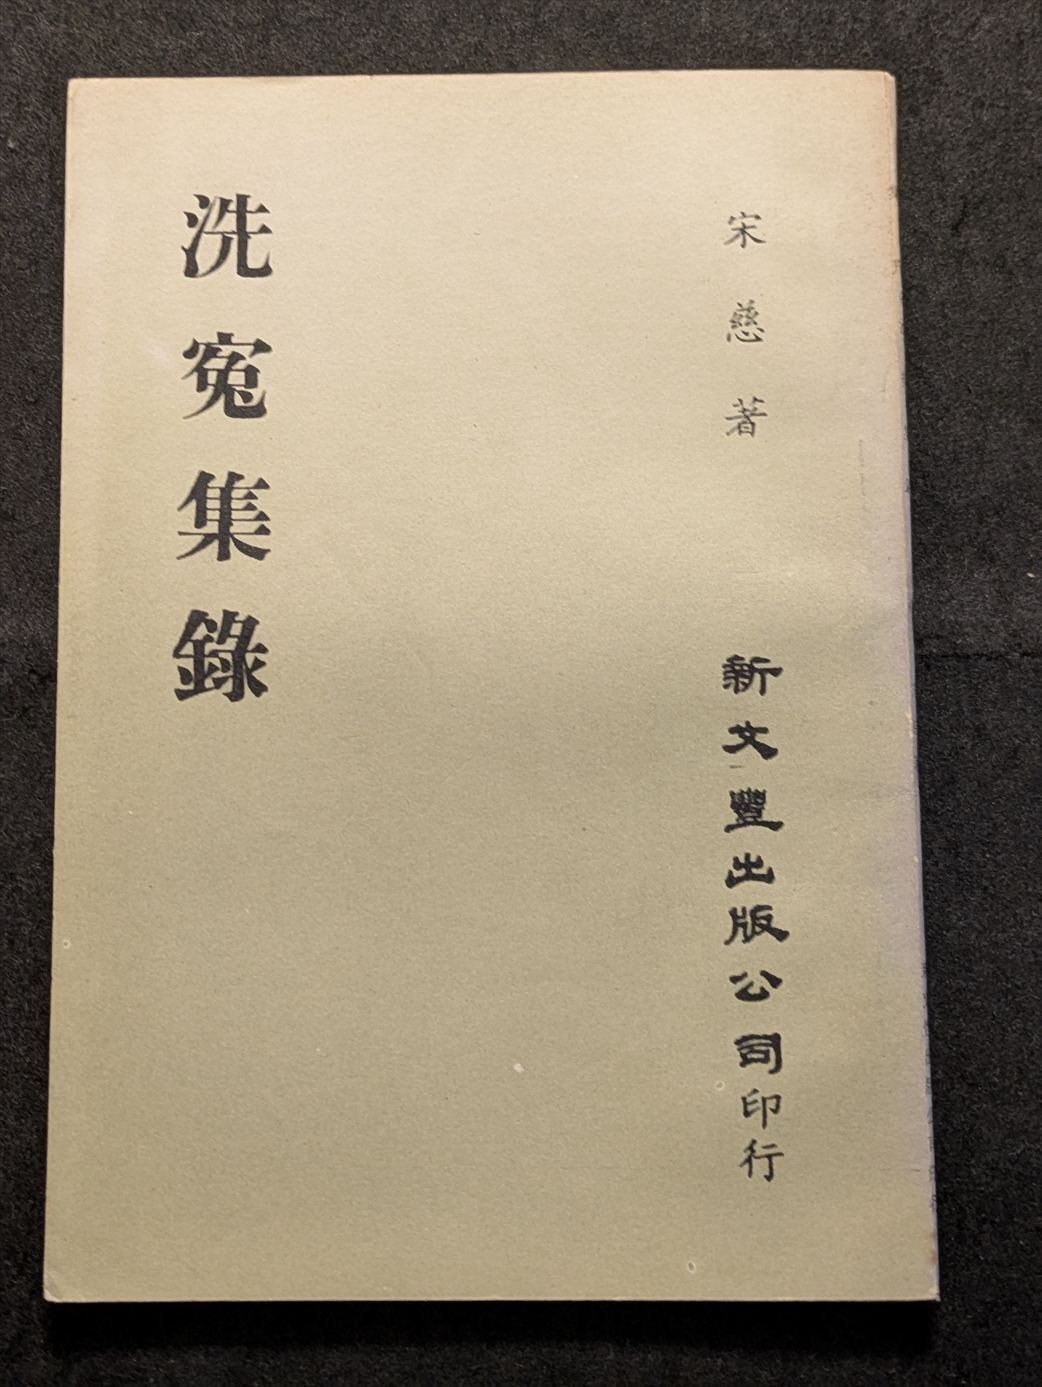 宋慈著
新文豐出版公司印行
洗寃集錄